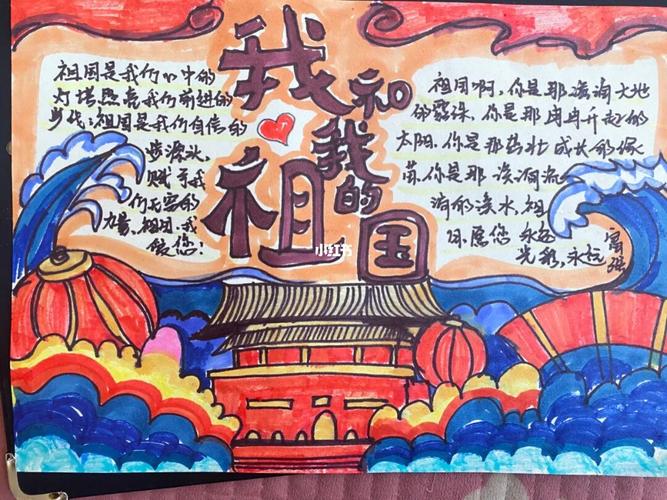 我和我的祖国
祖国是我们心中的
灯塔照亮我们前进的
步伐;祖国是我们自信的
步源水,
赋予我
们无穷的
力量。祖国,我
爱您!
祖国啊,你是那滋润大地
的露珠,你是那冉冉升起的
太阳,你是那茁壮成长的
苏,你是那
的溪水,祖
国,愿您永远
光彩,永远富强
小红书